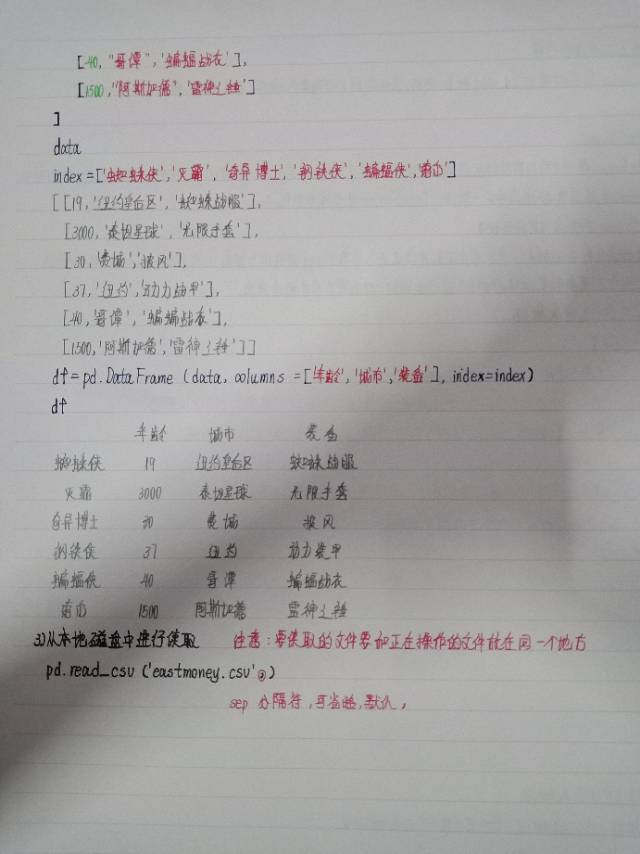 [40,"哥谭",'蝙蝠战衣'],
[1500,"阿斯加德",'雷神之锤']
]
data
index=['蜘蛛侠','灭霸','奇异博士','钢铁侠','蝙蝠侠','雷神']
[[19,'纽约皇后区','蜘蛛战服'],
[3000,'泰坦星球','无限手套'],
[30,'费城','披风'],
[37,'纽约','动力装甲'],
[40,'哥谭','蝙蝠战衣'],
[1500,'阿斯加德','雷神之锤']]
df=pd.DataFrame(data,columns=['年龄','城市','装备'],index=index)
df
年龄 城市 装备
蜘蛛侠 19 纽约皇后区 蜘蛛战服
灭霸 3000 泰坦星球 无限手套
奇异博士 30 费城 披风
钢铁侠 37 纽约 动力装甲
蝙蝠侠 40 哥谭 蝙蝠战衣
雷神 1500 阿斯加德 雷神之锤
3)从本地磁盘中进行读取 注意:要读取的文件要和正在操作的文件放在同一个地方
pd.read_csv('eastmoney.csv',)
sep 分隔符,可省略,默认,